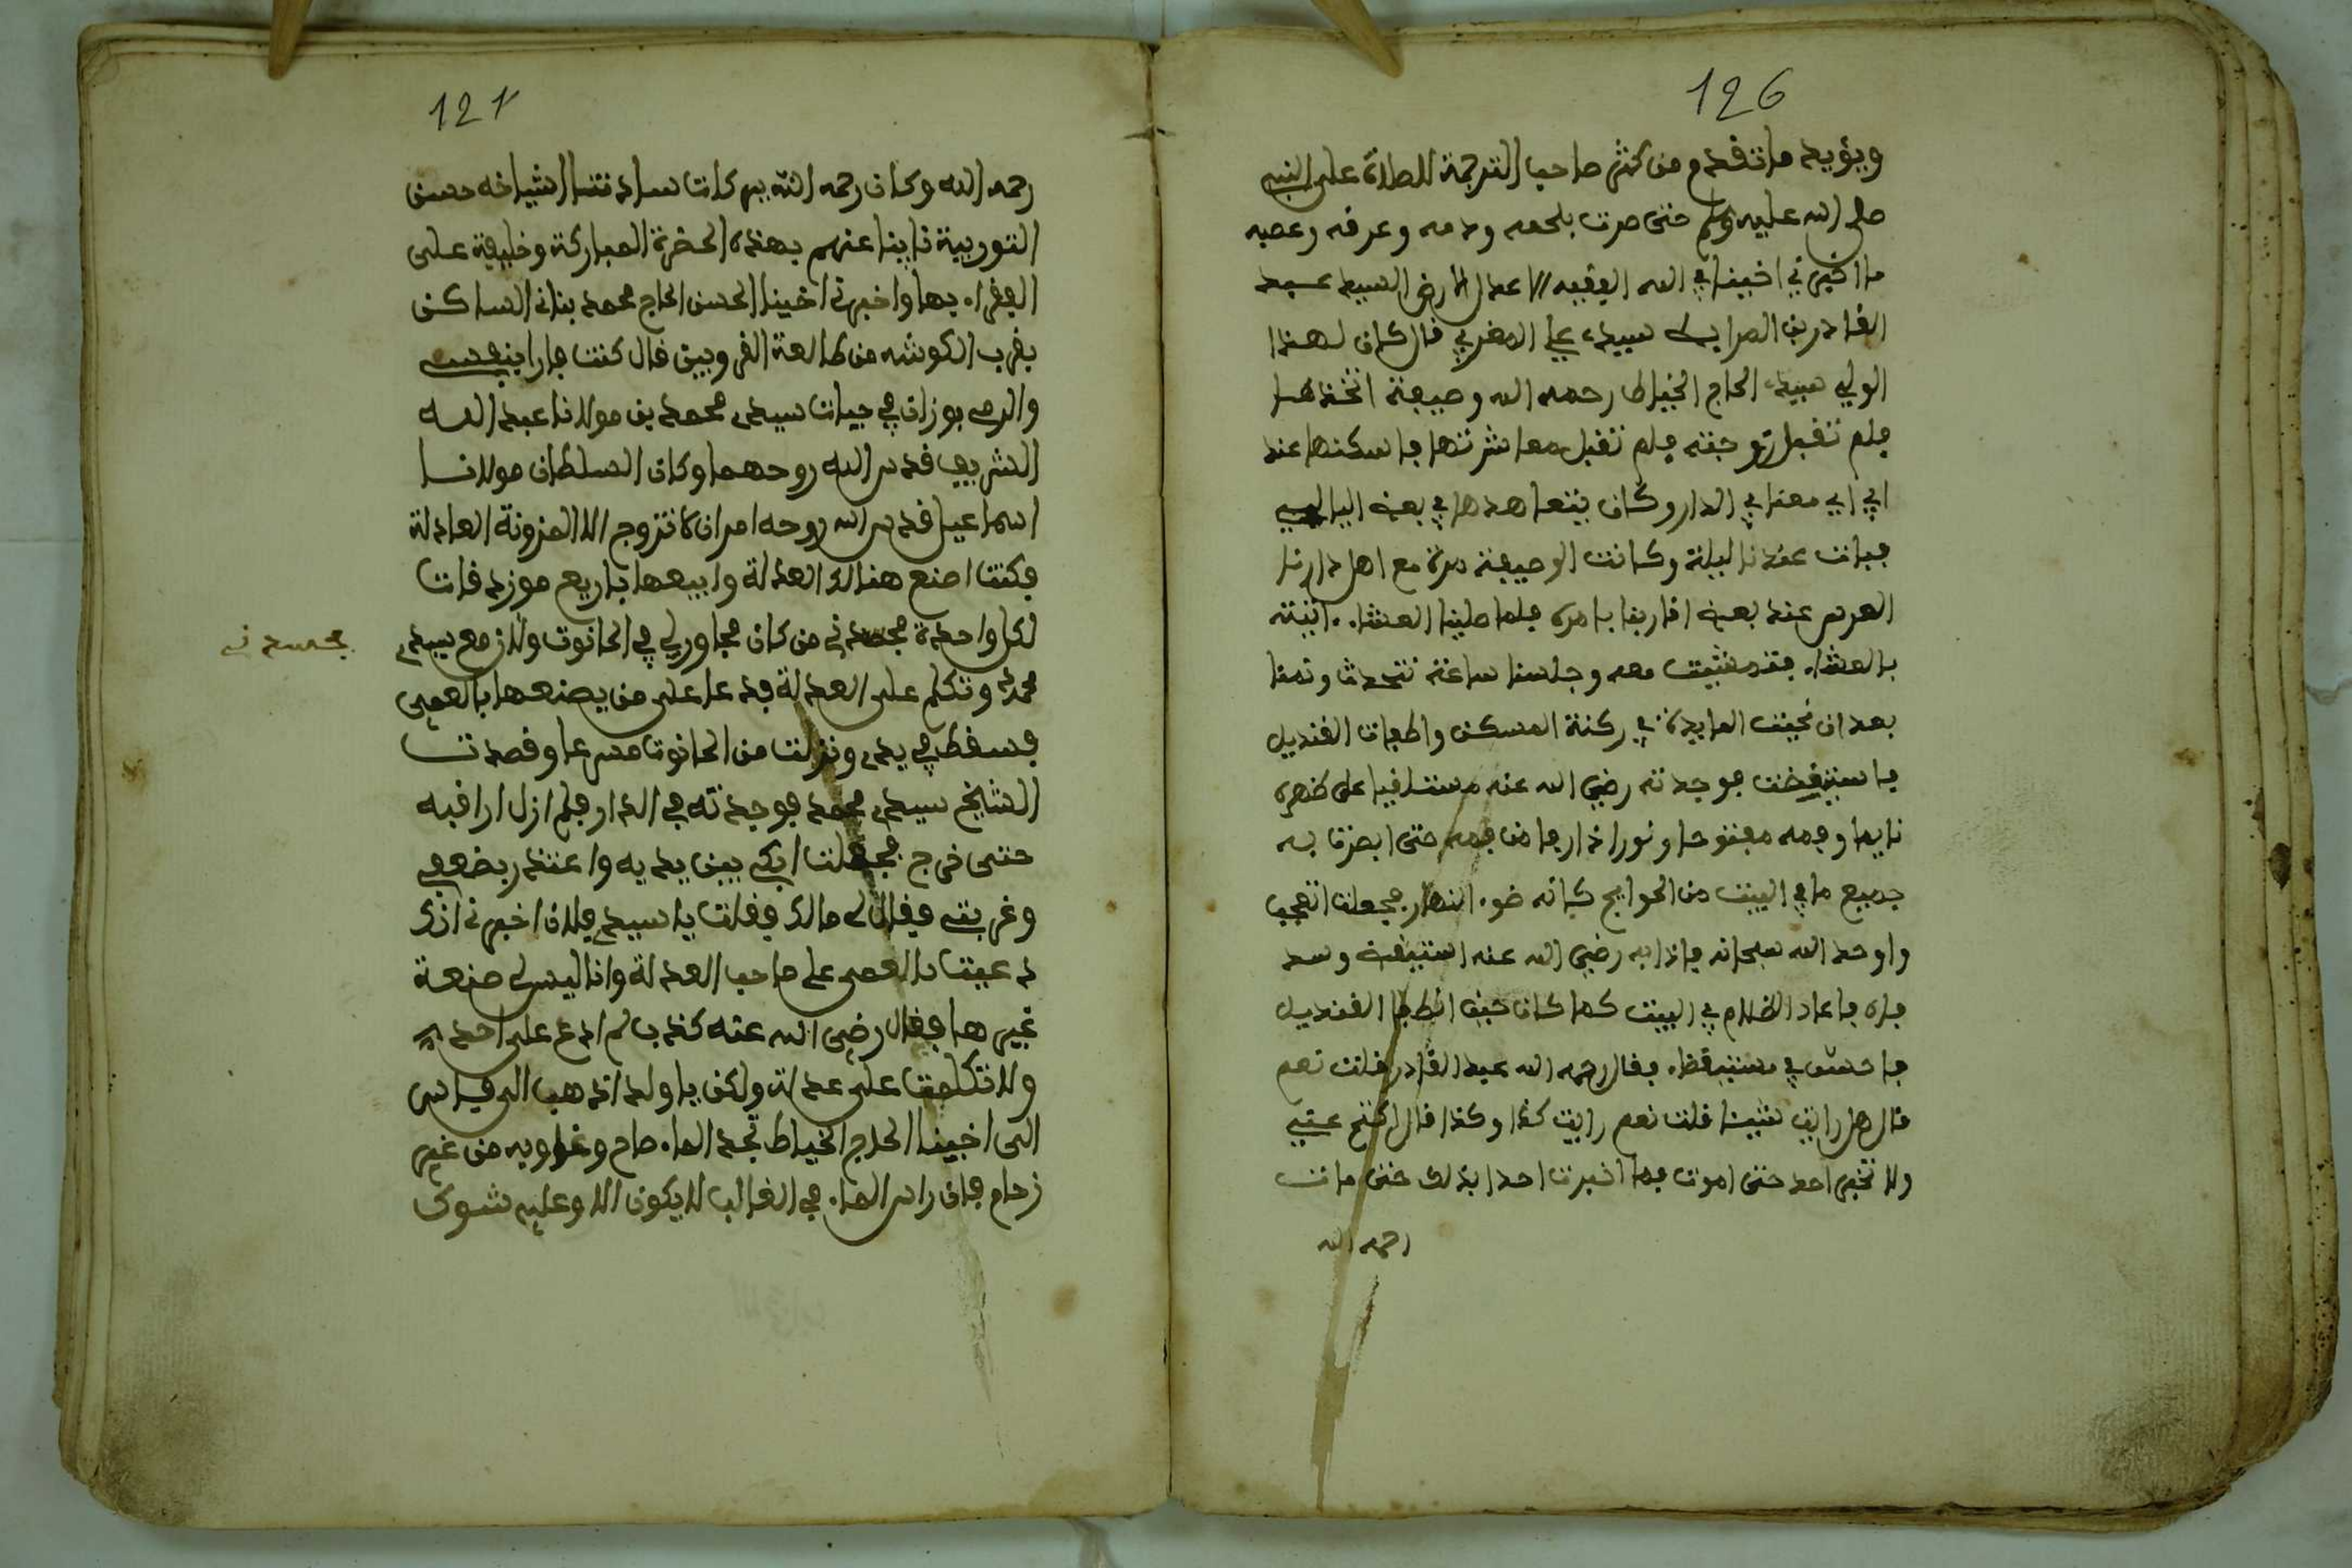 126
ويؤيد ما تقدم من كثرة صاحب الترجمة للصلاة على النبي
صلى الله عليه وسلم حتى صرت بلحمه ودمه وعرفه وعصبه
ما اخبرني اخينا في الله الفقيه العدل الارضى السيد عبد
القادر بن المرابط سيدي علي المغربي قال كان لهذا
الولي سيدي الحاج الخياط رحمه الله وصيفة اتخذها
فلم تقبل زوجته فلم تقبل معاشرتها فاسكنها عند
ابي معنا في الدار وكان يتعاهدها في بعض الليالي
فبات عندنا ليلة وكانت الوصيفة مرة مع اهل دارنا
العرس عند بعض اقاربنا بامره فلما صلينا العشاء اتيته
بالعشاء فتعشيت معه وجلسنا ساعة نتحدث ونمنا
بعد ان نحيت المايدة في ركنة المسكن واطفات القنديل
فاستيقظت فوجدته رضي الله عنه مستلقيا على ظهره
نايما وفمه مفتوحا ونورا خارجا من فمه حتى ابصرت به
جميع ما في البيت من الحوايج كانه ضوء النهار فجعلت اتعجب
واوحد الله سبحانه فاذا به رضي الله عنه استيقض وسد
فاه فاعاد الظلام في البيت كما كان حين انطفا القنديل
فاحس بي مستيقظا فقال رحمه الله عبد القادر قلت نعم
قال هل رايت شيئا قلت نعم رايت كذا وكذا قال اكتم عني
ولا تخبر احد حتى اموت فما اخبرت احدا بذلك حتى مات
رحمه الله
121
رحمه الله وكان رحمه الله بير كات ساداتنا اشياخه حسن
التوربية نايبا عنهم بهذه الحضرة المباركة وخليفة على
الفقراء بها واخبرني اخينا الحسن الحاج محمد بناني الساكن
بقرب الكوشه من طالعة القرويين قال كنت مارا بنفسي
والدي بوزان في حيات سيدي محمد بن مولانا عبد الله
الشريف قدس الله روحهما وكان السلطان مولانا
اسماعيل قدس الله روحه امران لا تزوج الا المزونة العادلة
فكنت اصنع هنالك العدلة وابيعها باربع موزونات
لكل واحدة فجسدني من كان مجاور لي في الحانوت ولاذ مع سيدي
محمد وتكلم على العدلة فدعا على من يصنعها بالعمى
فسقط في يدي ونزلت من الحانوت مسرعا وقصدت
الشيخ سيدي محمد فوجدته في الدار فلم ازل اراقبه
حتى خرج فجعلت ابكي بين يديه واعتذر بضعفي
وغربتي فقال لي مالك فقلت يا سيدي فلان اخبرني انك
دعيت بالعمى على صاحب العدلة وانا ليس لي صنعة
غيرها فقال رضي الله عنه كذب لم ادع على احد
ولا تكلمت على عدلة ولكن يا ولد اذهب الى فاس
الى اخينا الحاج الخياط تجد الماء صاح وغاويه من غير
زحام فان راس الماء في الغالب لا يكون الا وعليه شوك
فجسدني